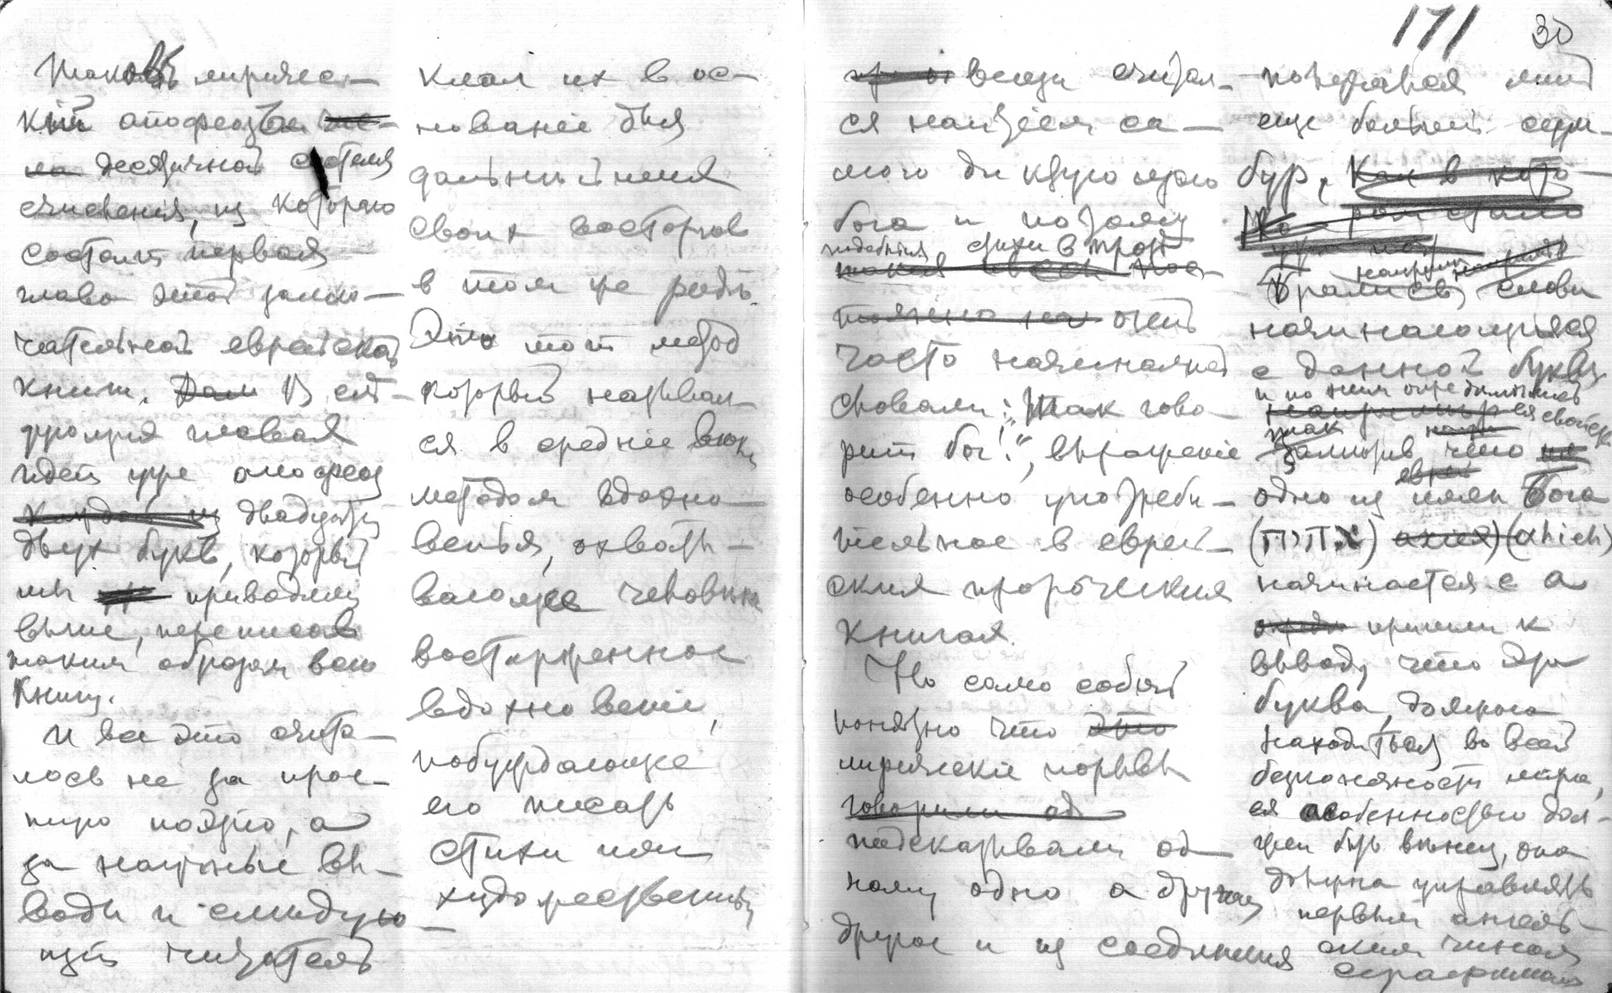 171 30
Таковъ лириче-
кій апофеозъ
десятичной системы
счисленія, из котораго
состоит первая
глава этой замѣ-
чательной еврейской
книги. В слѣ-
дующія главах
идет уже апофеоз
двадцати
двух букв, который
мы приводим
выше, переписав
таким образом всю
книгу.
И все это счита-
лось не за прос-
тую поэзію, а
за научные вы-
воды и слѣдую-
щій читатель
клал их в ос-
нованіе для
дальнѣйшия
своих восторгов
в том же родѣ.
Это тот метод
который называл-
ся в средніе вѣка
методом вдохно-
венья, охваты-
вающее человѣка
восторженное
вдохновеніе,
побуждающее
его писать
стихи или
художественныя
вещи считал-
ся наитіем са-
мого диктующаго
бога и потому
подобныя стихи в прозѣ
очень
часто начинались
словами: "Так гово-
рит бог!", выраженіе
особенно употреби-
тельное в еврей-
ских пророческих
книгах.
Но само собой
понятно что
лирическіе порывы
подсказывали од-
ному одно а другому
другое и из соединенія
получался
еще больший сум-
бур.
Брались слова
начинающіяся
с данной буквы
и по ним опредѣлялись
ея свойства
замѣтив что
одно из имен Бога
(ahieh)
начинается с а
пришли к
выводу, что эта
буква, должна
находиться во всей
безконечности міра,
ея особенностью дол-
жен быть вѣнец, она
должна управлять
первым ангель-
ским чином
серафимам